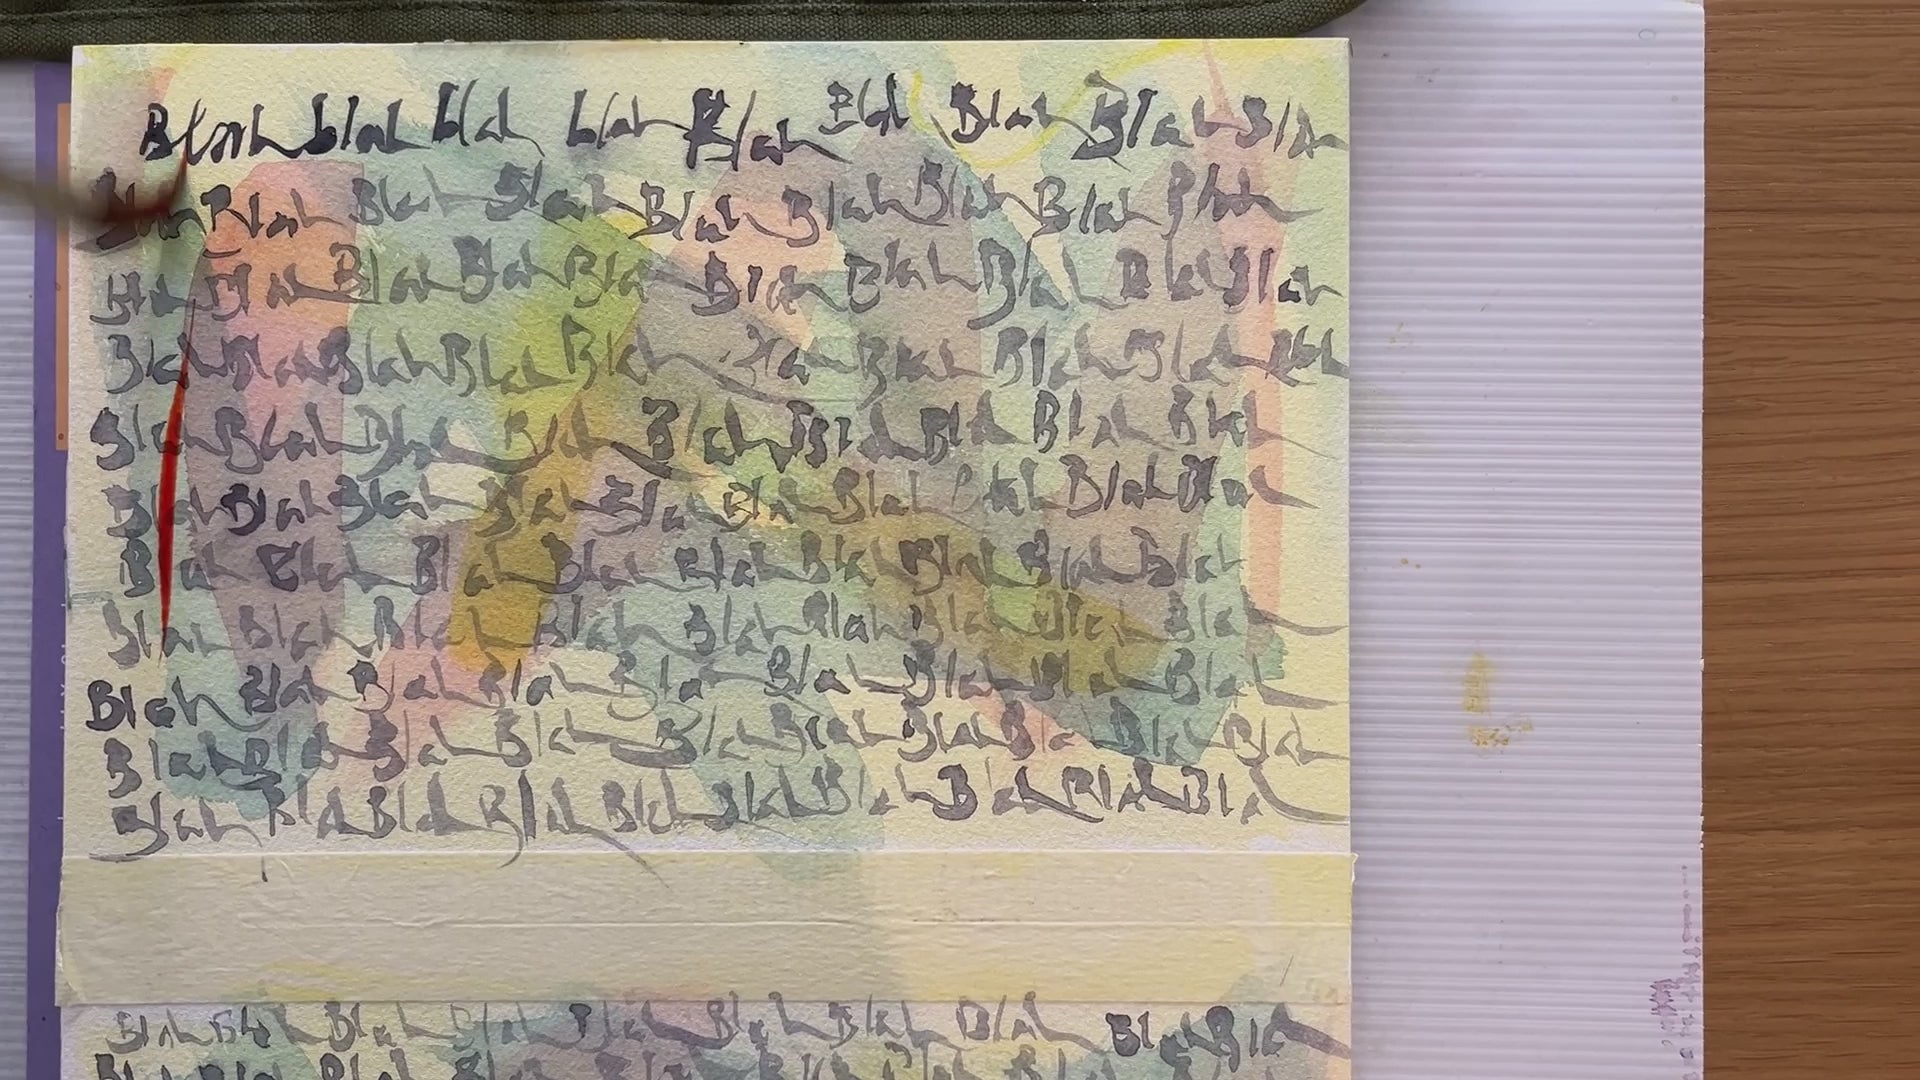 Blah blah blah blah Blah Blah Blah Blah Blah
Blah Blah Blah Blah Blah Blah Blah Blah Blah
Blah Blah Blah Blah Blah Blah Blah Blah Blah Blah
Blah Blah Blah Blah Blah Blah Blah Blah Blah Blah
Blah Blah Blah Blah Blah Blah Blah Blah Blah
Blah Blah Blah Blah Blah Blah Blah Blah Blah Blah
Blah Blah Blah Blah Blah Blah Blah Blah Blah
Blah Blah Blah Blah Blah Blah Blah Blah Blah
Blah Blah Blah Blah Blah Blah Blah Blah Blah
Blah Blah Blah Blah Blah Blah Blah Blah Blah
Blah Blah Blah Blah Blah Blah Blah Blah Blah Blah
Blah Blah Blah Blah Blah Blah Blah Blah Blah Blah